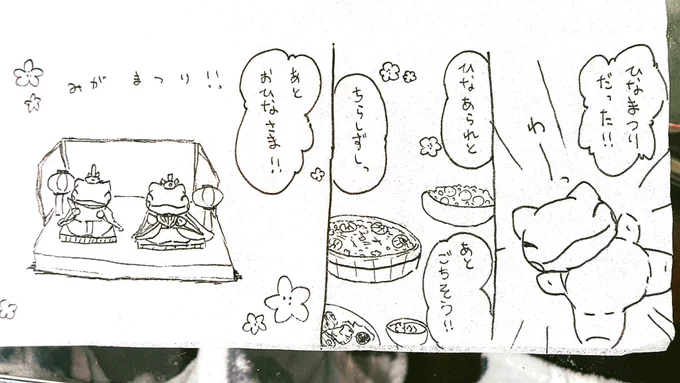 ひなまつり
だった!!
わ
ひなあられと
ちらしずしっ
あと
ごちそう!!
あと
おひなさま!!
みが まつり!!